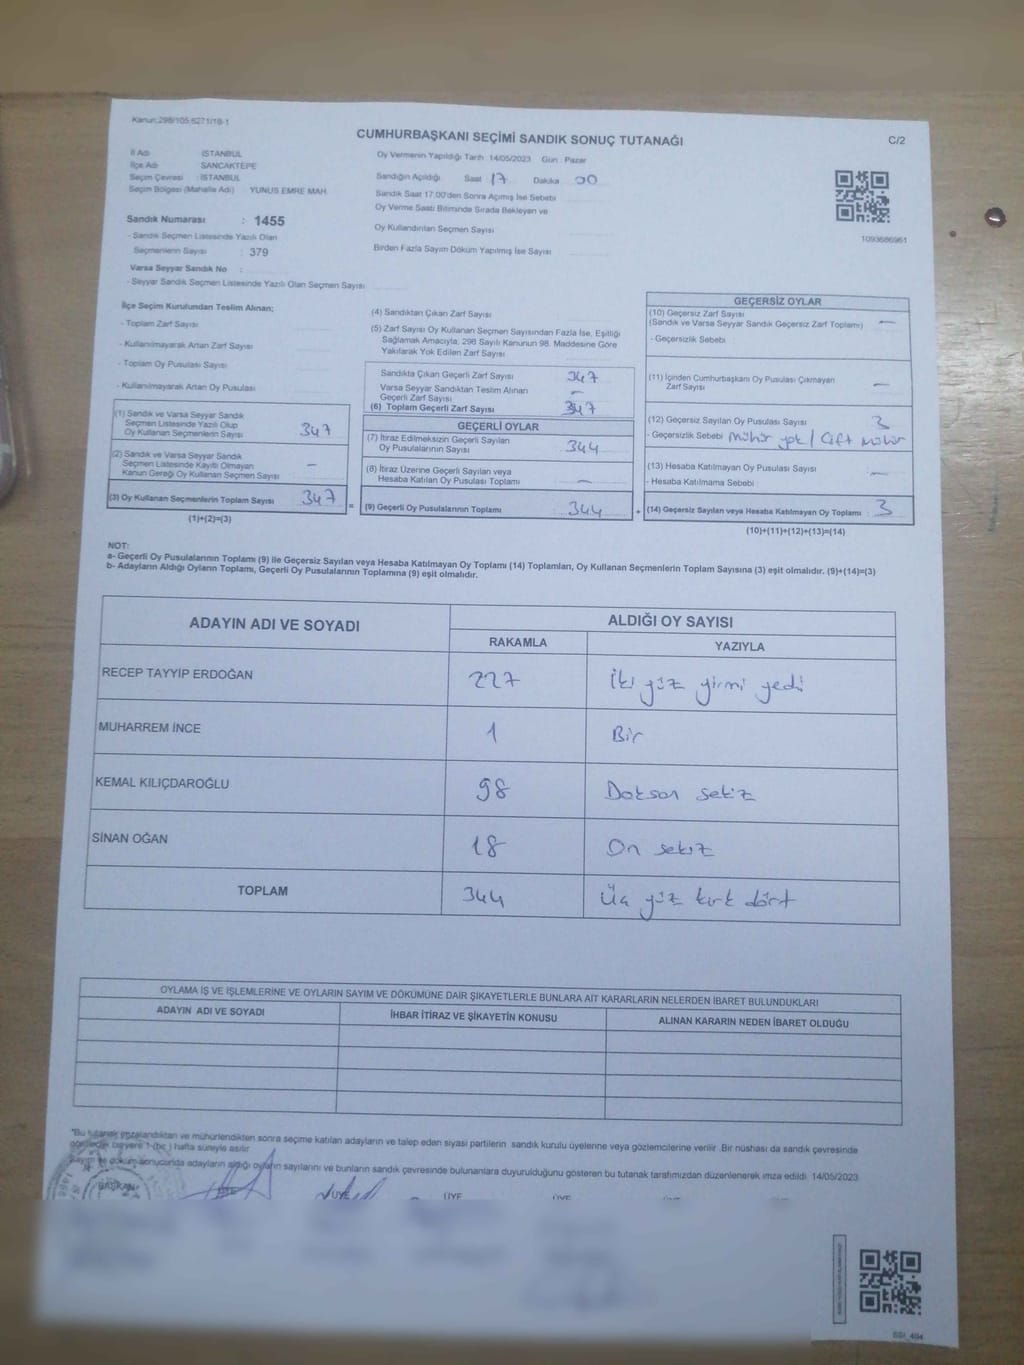 Kanun:298/105.6271/18-1
CUMHURBAŞKANI SEÇİMİ SANDIK SONUÇ TUTANAĞI
C/2
İl Adı İSTANBUL
İlçe Adı SANCAKTEPE
Seçim Çevresi : İSTANBUL
Seçim Bölgesi (Mahalle Adı) YUNUS EMRE MAH.
Sandık Numarası : 1455
- Sandık Seçmen Listesinde Yazılı Olan
Seçmenlerin Sayısı : 379
Varsa Seyyar Sandık No :
- Seyyar Sandık Seçmen Listesinde Yazılı Olan Seçmen Sayısı
Oy Vermenin Yapıldığı Tarih: 14/05/2023 Gün: Pazar
Sandığın Açıldığı Saat 17 Dakika 00
Sandık Saat 17.00'den Sonra Açımış İse Sebebi
Oy Verme Saati Bitiminde Sırada Bekleyen ve
Oy Kullandırılan Seçmen Sayısı
Birden Fazla Sayım Döküm Yapılmış İse Sayısı
1093686961
İlçe Seçim Kurulundan Teslim Alınan;
- Toplam Zarf Sayısı
- Kullanılmayarak Artan Zarf Sayısı
- Toplam Oy Pusulası Sayısı
- Kullanılmayarak Artan Oy Pusulası
(1) Sandık ve Varsa Seyyar Sandık
Seçmen Listesinde Yazılı Olup
Oy Kullanan Seçmenlerin Sayısı 347
(2) Sandık ve Varsa Seyyar Sandık
Seçmen Listesinde Kayıtlı Olmayan
Kanun Gereği Oy Kullanan Seçmen Sayısı –
(3) Oy Kullanan Seçmenlerin Toplam Sayısı 347 =
(1)+(2)=(3)
(4) Sandıktan Çıkan Zarf Sayısı
(5) Zarf Sayısı Oy Kullanan Seçmen Sayısından Fazla İse, Eşitliği
Sağlamak Amacıyla, 298 Sayılı Kanunun 98. Maddesine Göre
Yakılarak Yok Edilen Zarf Sayısı
Sandıkta Çıkan Geçerli Zarf Sayısı 347
Varsa Seyyar Sandıktan Teslim Alınan
Geçerli Zarf Sayısı –
(6) Toplam Geçerli Zarf Sayısı 347
GEÇERLİ OYLAR
(7) İtiraz Edilmeksizin Geçerli Sayılan
Oy Pusulalarının Sayısı 344
(8) İtiraz Üzerine Geçerli Sayılan veya
Hesaba Katılan Oy Pusulası Toplamı –
(9) Geçerli Oy Pusulalarının Toplamı 344 +
GEÇERSİZ OYLAR
(10) Geçersiz Zarf Sayısı
(Sandık ve Varsa Seyyar Sandık Geçersiz Zarf Toplamı) –
- Geçersizlik Sebebi
(11) İçinden Cumhurbaşkanı Oy Pusulası Çıkmayan
Zarf Sayısı –
(12) Geçersiz Sayılan Oy Pusulası Sayısı 3
- Geçersizlik Sebebi Mühür yok / Çift mühür
(13) Hesaba Katılmayan Oy Pusulası Sayısı –
- Hesaba Katılmama Sebebi
(14) Geçersiz Sayılan veya Hesaba Katılmayan Oy Toplamı : 3
(10)+(11)+(12)+(13)=(14)
NOT:
a- Geçerli Oy Pusulalarının Toplamı (9) ile Geçersiz Sayılan veya Hesaba Katılmayan Oy Toplamı (14) Toplamları, Oy Kullanan Seçmenlerin Toplam Sayısına (3) eşit olmalıdır. (9)+(14)=(3)
b- Adayların Aldığı Oyların Toplamı, Geçerli Oy Pusulalarının Toplamına (9) eşit olmalıdır.
ADAYIN ADI VE SOYADI
ALDIĞI OY SAYISI
RAKAMLA YAZIYLA
RECEP TAYYİP ERDOĞAN 227 İki yüz yirmi yedi
MUHARREM İNCE 1 Bir
KEMAL KILIÇDAROĞLU 98 Doksan sekiz
SİNAN OĞAN 18 On sekiz
TOPLAM 344 Üç yüz kırk dört
OYLAMA İŞ VE İŞLEMLERİNE VE OYLARIN SAYIM VE DÖKÜMÜNE DAİR ŞİKAYETLERLE BUNLARA AİT KARARLARIN NELERDEN İBARET BULUNDUKLARI
ADAYIN ADI VE SOYADI İHBAR İTİRAZ VE ŞİKAYETİN KONUSU ALINAN KARARIN NEDEN İBARET OLDUĞU
"Bu tutanak imzalandıktan ve mühürlendikten sonra seçime katılan adayların ve talep eden siyasi partilerin sandık kurulu üyelerine veya gözlemcilerine verilir. Bir nüshası da sandık çevresinde
görülecek bir yere 1 (bir) hafta süreyle asılır
Sayım ve döküm sonucunda adayların aldığı oyların sayılarını ve bunların sandık çevresinde bulunanlara duyurulduğunu gösteren bu tutanak tarafımızdan düzenlenerek imza edildi. 14/05/2023
BAŞKAN ÜYE ÜYE ÜYE